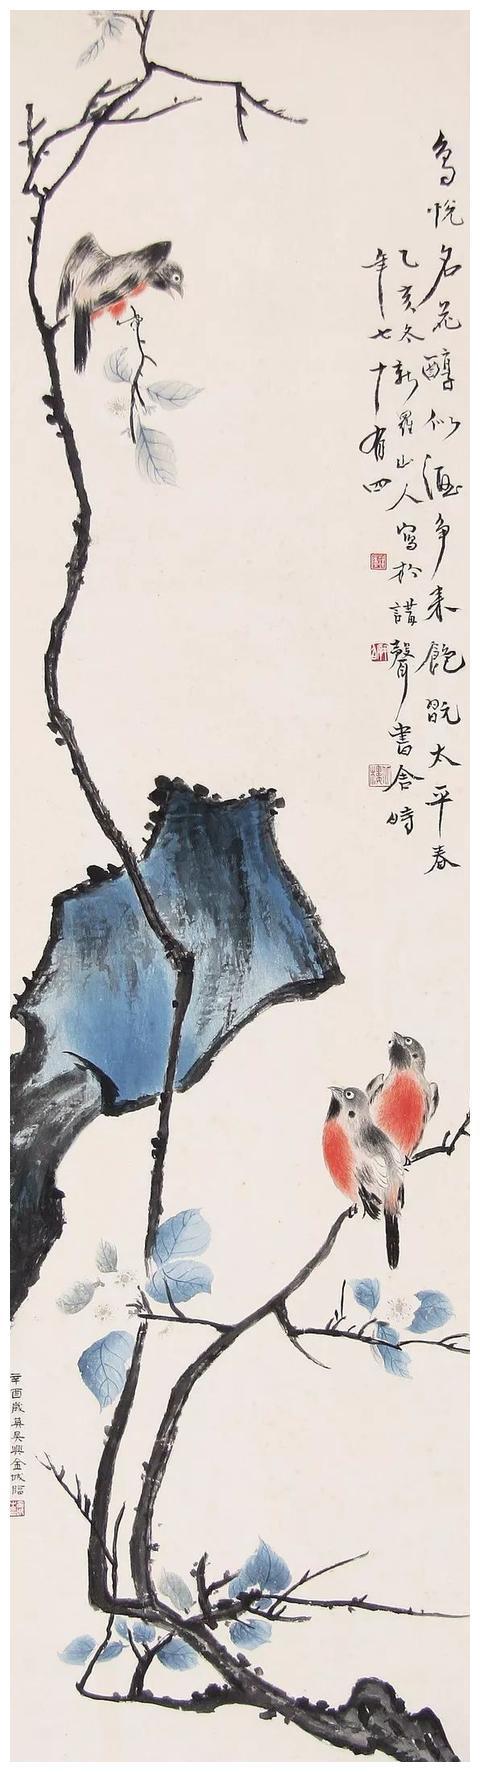 鸟悦名花醇似酒争来饱翫太平春
乙亥冬新羅山人寫於講聲書舍時
年七十有四
辛酉歲莫吳興金城臨